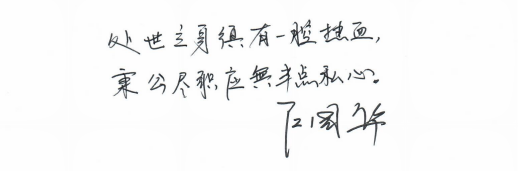 处世立身须有一腔热血，
秉公尽职应無半点私心。